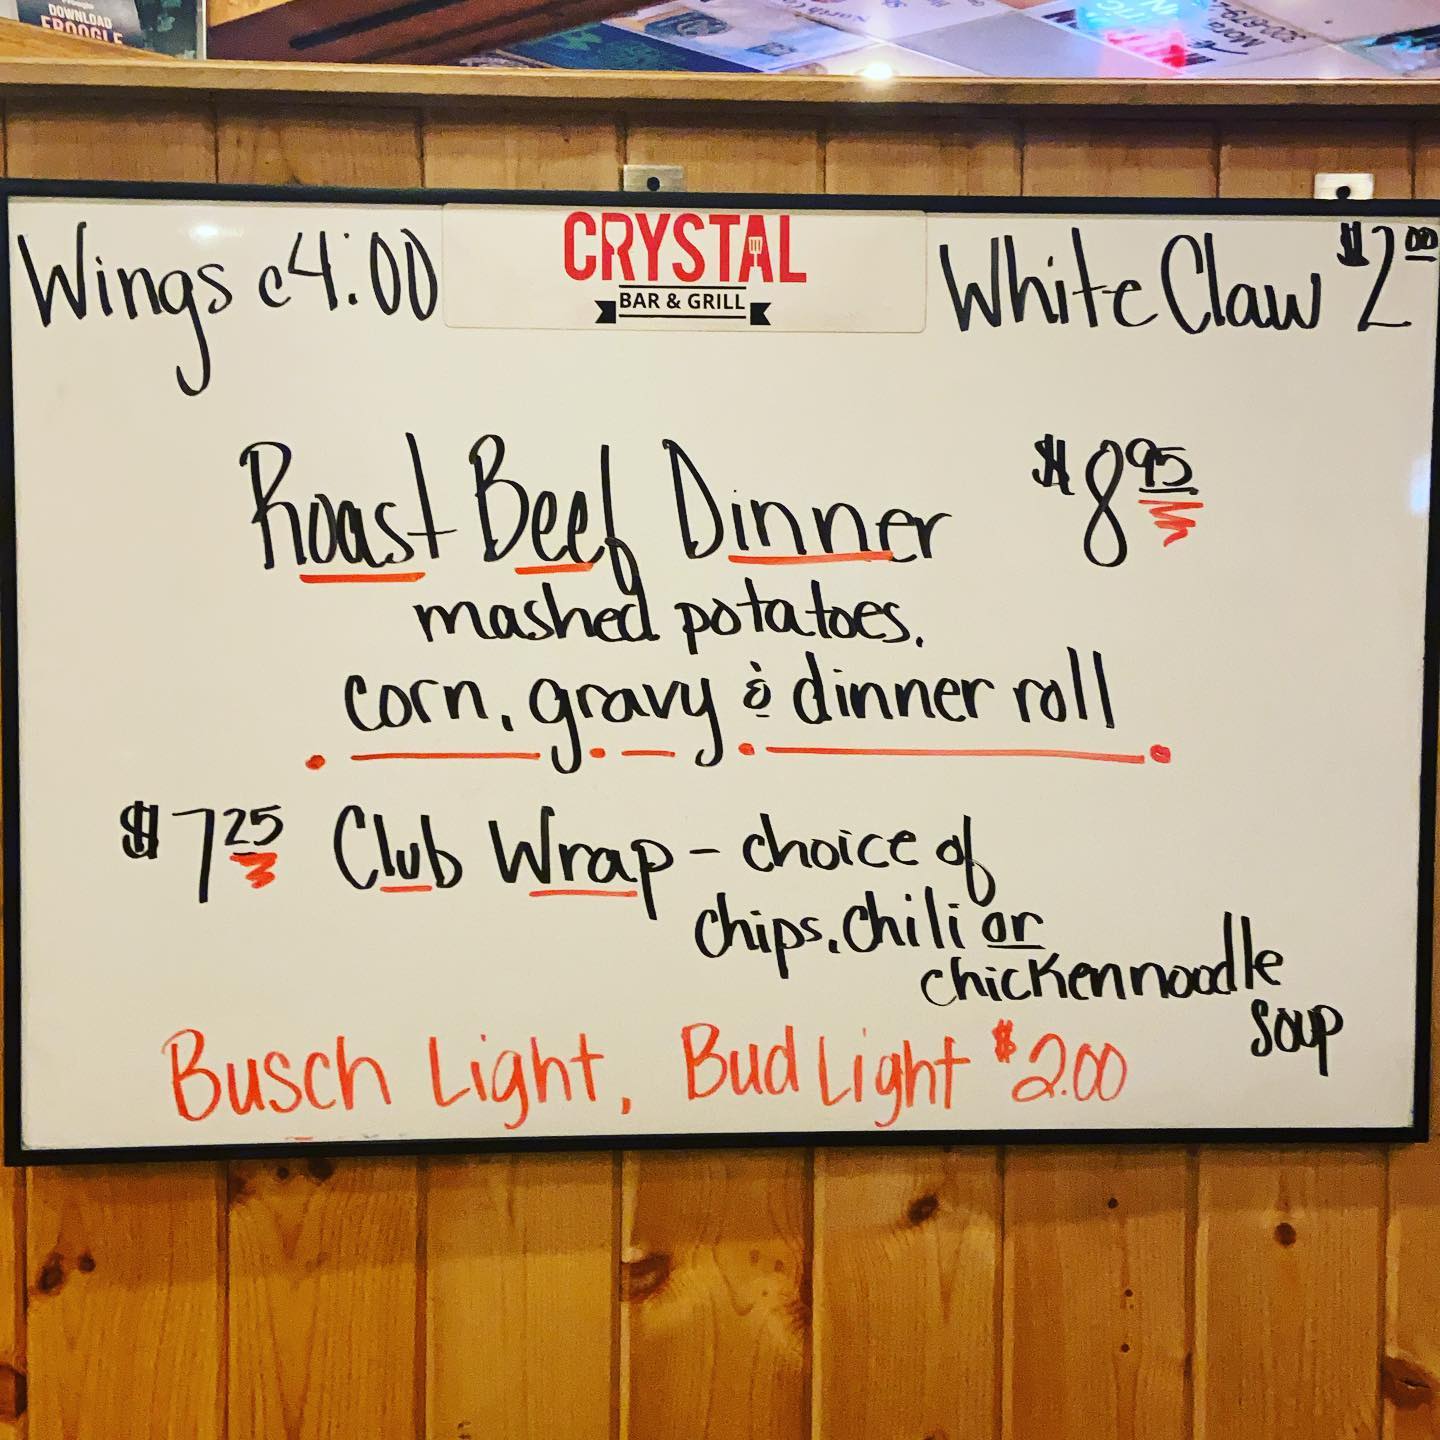 DOWNLOAD
FROOGLE
CRYSTAL
BAR & GRILL
Wings c4:00
White Claw $2.00
Roast Beef Dinner $8.95
mashed potatoes,
corn, gravy & dinner roll
$7.25 Club Wrap - choice of
chips, chili or
chicken noodle
soup
Busch Light, Bud Light $2.00